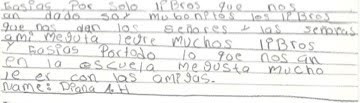 Gasias Por Solo lPBros que nos
an dado sox mu bonitos los lPBros
que nos dan los señores y las señoras
ami megusta leere muchos lPBros
y Gasias Partodo lo que nos an
en la escuela megusta mucho
le er con las amigas.
Name: Diana A H